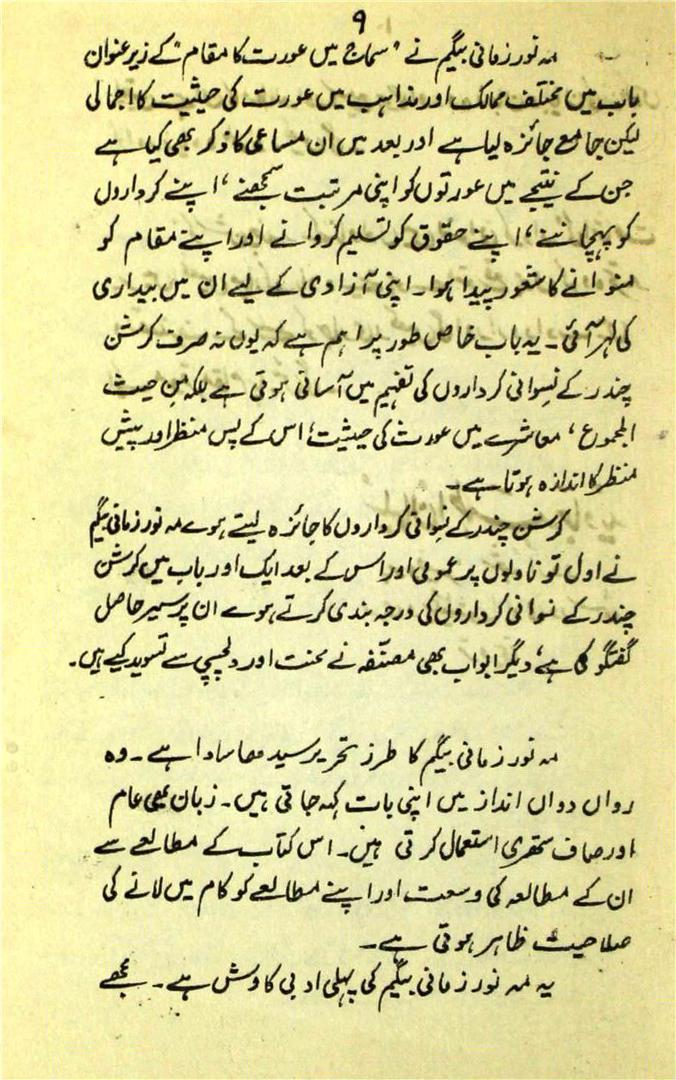 ۹
مہ نور زمانی بیگم نے "سماج میں عورت کا مقام" کے زیر عنوان
باب میں مختلف ممالک اور مذاہب میں عورت کی حیثیت کا اجمالی
لیکن جامع جائزہ لیا ہے اور بعد میں ان مساعی کا ذکر بھی کیا ہے
جن کے نتیجے میں عورتوں کو اپنی مرتبت سمجھنے ، اپنے کرداروں
کو پہچاننے ، اپنے حقوق کو تسلیم کروانے اور اپنے مقام کو
منوانے کا شعور پیدا ہوا۔ اپنی آزادی کے لیے ان میں بیداری
کی لہر آئی۔ یہ باب خاص طور پر اہم ہے کہ یوں نہ صرف کرشن
چندر کے نسوانی کرداروں کی تفہیم میں آسانی ہوتی ہے بلکہ من حیث
المجموع ، معاشرے میں عورت کی حیثیت، اس کے پس منظر اور پیش
منظر کا اندازہ ہوتا ہے۔
کرشن چندر کے نسوانی کرداروں کا جائزہ لیتے ہوے مہ نور زمانی بیگم
نے اول تو ناولوں پر عمومی اور اس کے بعد ایک اور باب میں کرشن
چندر کے نسوانی کرداروں کی درجہ بندی کرتے ہوے ان پر سیر حاصل
گفتگو کی ہے، دیگر ابواب بھی مصنّفہ نے محنت اور دلچسپی سے تسوید کیے ہیں۔
مہ نور زمانی بیگم کا طرز تحریر سیدھا سادا ہے۔ وہ
رواں دواں انداز میں اپنی بات کہہ جاتی ہیں۔ زبان بھی عام
اور صاف ستھری استعمال کرتی ہیں۔ اس کتاب کے مطالعے سے
ان کے مطالعہ کی وسعت اور اپنے مطالعے کو کام میں لانے کی
صلاحیت ظاہر ہوتی ہے۔
یہ مہ نور زمانی بیگم کی پہلی ادبی کاوش ہے۔ مجھے